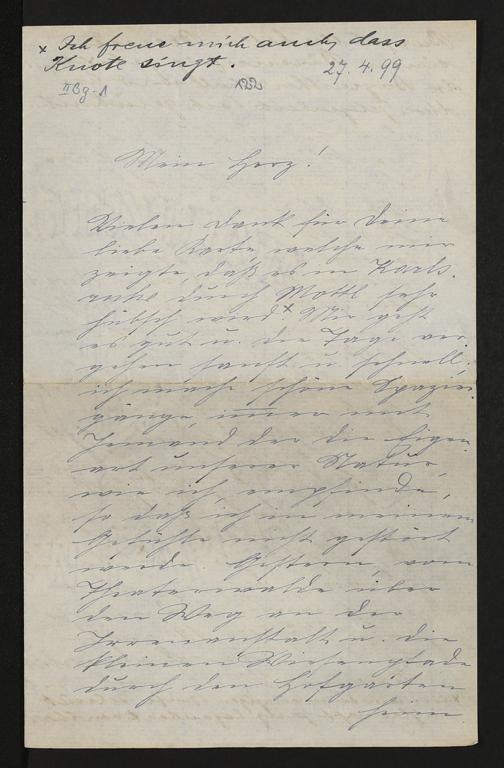 x Ich freue mich auch, dass
Knote singt.
27. 4. 99
II Bg. 1
122
Mein Herz!
Vielen Dank für Deine
liebe Karte, welche mir
zeigte, daß es in Karls-
ruhe durch Mottl sehr
hübsch wird.x Mir geht
es gut u. die Tage ver-
gehen sanft u. schnell;
ich mache schöne Spazier-
gänge, immer mit
Jemand der die Eigen-
art unserer Natur,
wie ich, empfindet,
so daß ich in meinen
Gefühlen nicht gestört
werde. Gestern, vom
Theaterwalde über
den Weg an der
Irrenanstalt u. die
kleinen Wiesenpfade
durch den Hofgarten
heim